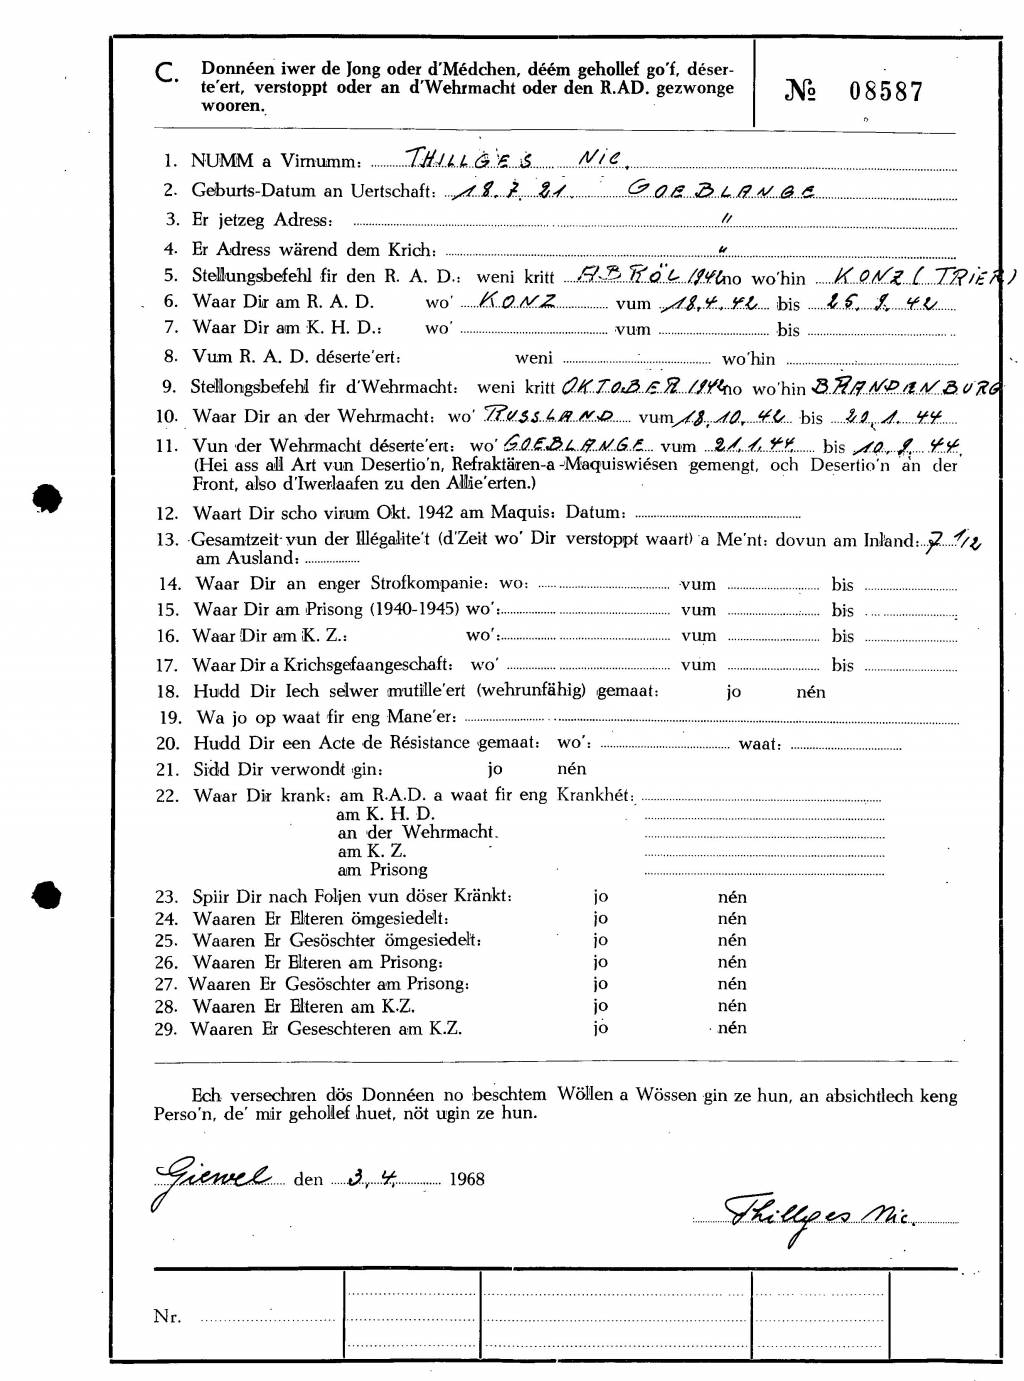 C. Donnéen iwer de Jong oder d'Médchen, déém gehollef go'f, déser-
te'ert, verstoppt oder an d'Wehrmacht oder den R.AD. gezwonge
wooren.
№ 08587
1. NUMM a Virnumm: THILLGES NIC.
2. Geburts-Datum an Uertschaft: 18.7.21. GOEBLANGE
3. Er jetzeg Adress: "
4. Er Adress wärend dem Krich: "
5. Stellungsbefehl fir den R. A. D.: weni kritt ABRÖL 1942 no wo'hin KONZ (TRIER)
6. Waar Dir am R. A. D. wo' KONZ vum 18.4.42 bis 25.9.42
7. Waar Dir am K. H. D.: wo' vum bis
8. Vum R. A. D. déserte'ert: weni wo'hin
9. Stellongsbefehl fir d'Wehrmacht: weni kritt OKTOBER 1942 no wo'hin BRANDENBURG
10. Waar Dir an der Wehrmacht: wo' RUSSLAND vum 18.10.42 bis 20.1.44
11. Vun der Wehrmacht déserte'ert: wo' GOEBLANGE vum 21.1.44. bis 10.9.44.
(Hei ass all Art vun Desertio'n, Refraktären-a-Maquiswiésen gemengt, och Desertio'n an der
Front, also d'Iwerlaafen zu den Allie'erten.)
12. Waart Dir scho virum Okt. 1942 am Maquis: Datum:
13. Gesamtzeit vun der Illégalite't (d'Zeit wo' Dir verstoppt waart) a Me'nt: dovun am Inland: 7 1/2
am Ausland:
14. Waar Dir an enger Strofkompanie: wo: vum bis
15. Waar Dir am Prisong (1940-1945) wo': vum bis
16. Waar Dir am K. Z.: wo': vum bis
17. Waar Dir a Krichsgefaangeschaft: wo' vum bis
18. Hudd Dir Iech selwer mutille'ert (wehrunfähig) gemaat: jo nén
19. Wa jo op waat fir eng Mane'er:
20. Hudd Dir een Acte de Résistance gemaat: wo': waat:
21. Sidd Dir verwondt gin: jo nén
22. Waar Dir krank: am R.A.D. a waat fir eng Krankhét:
am K. H. D.
an der Wehrmacht.
am K. Z.
am Prisong
23. Spiir Dir nach Foljen vun döser Kränkt: jo nén
24. Waaren Er Elteren ömgesiedelt: jo nén
25. Waaren Er Gesöschter ömgesiedelt: jo nén
26. Waaren Er Elteren am Prisong: jo nén
27. Waaren Er Gesöschter am Prisong: jo nén
28. Waaren Er Elteren am K.Z. jo nén
29. Waaren Er Geseschteren am K.Z. jo nén
Ech versechren dös Donnéen no beschtem Wöllen a Wössen gin ze hun, an absichtlech keng
Perso'n, de' mir gehollef huet, nöt ugin ze hun.
Giewel den 3.4. 1968
Thillges Nic.
Nr.